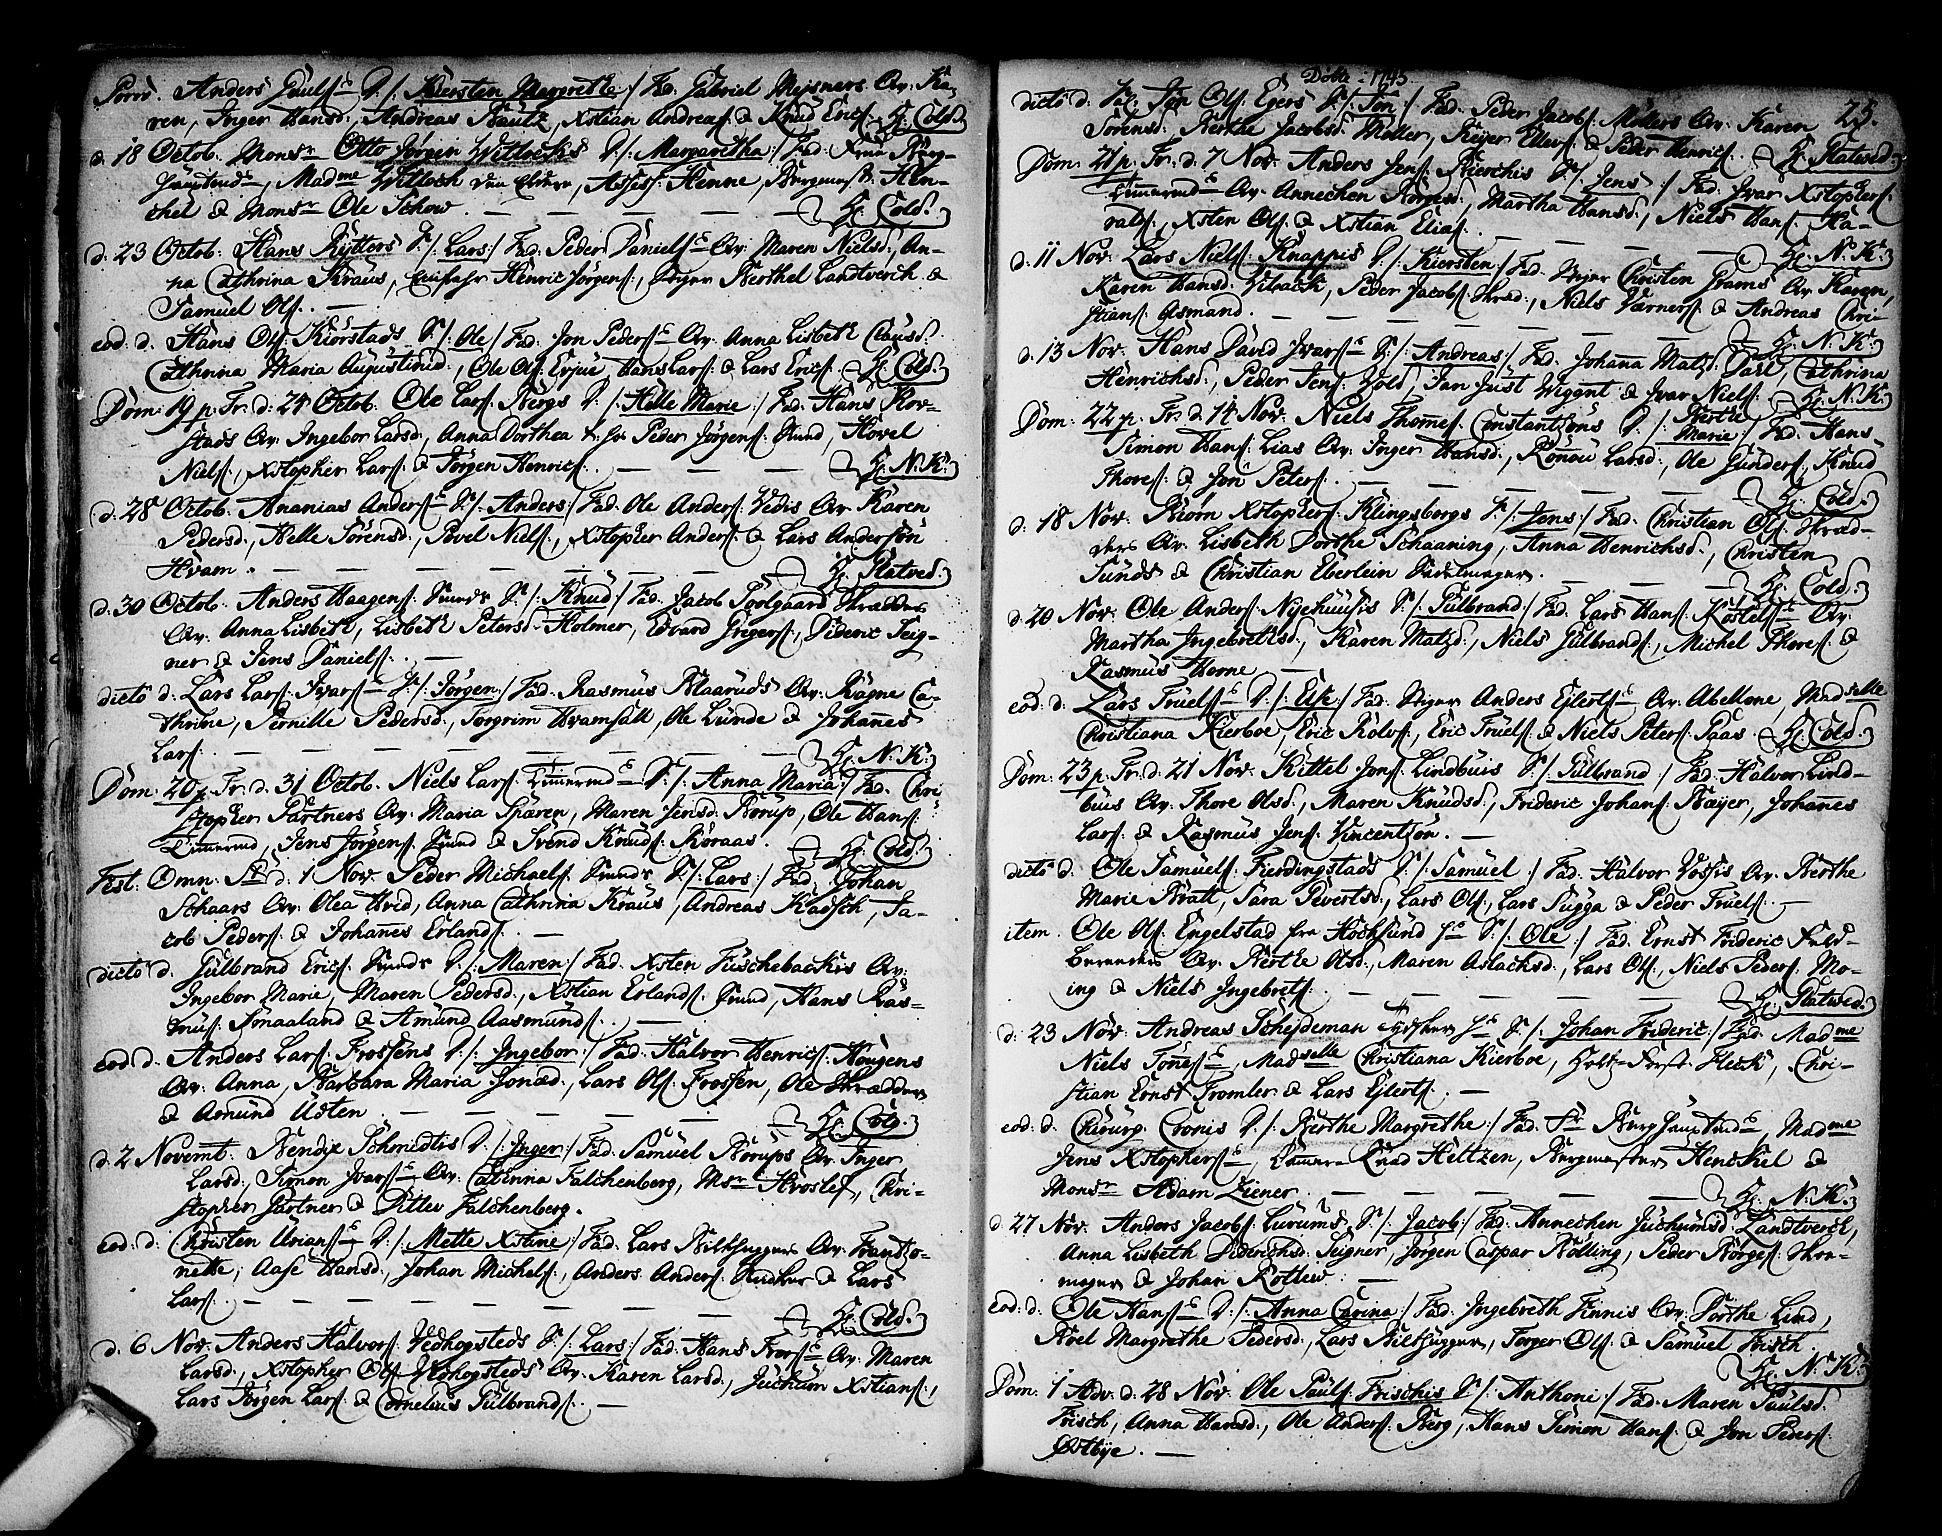 Anders Pauls D./: Kiersten Margrethe :/ Fad. Gabriel Meisners Qv. Ka-
ren, Inger Hansd., Andreas Bautz, Xstian Andreas. & Knud Erics. Hr. Cold.
d. 18 Octob. Monsr Otto Jørgen Wittlochs D./: Margaretha :/ Fad. Frue Berg-
Hauptmds, Madme Wittloch den eldere, Assess. Henne, Bergmest. Hen-
chel & Monsr Ole Schow. Hr. Cold.
d. 23 Octob. Hans Rytters S./: Lars :/ Fad. Peder Daniels Qv. Maren Nielsd., An-
na Cathrina Kraus, Henric Jørgens., Berthel Landtverch &
Samuel Ols.
eod. d. Hans Ols. Kiørstads S./: Ole :/ Fad. Jon Peders Qv. Anna Lisbeth Clausd.
Cathrina Maria Augustinid., Ole Ols. Erjue, Hans Lars. & Lars Erics. Hr. Cold.
Dom. 19 p. Tr. d. 24 Octob. Ole Lars. Bergs D./: Helle Marie :/ Fad. Hans Kov-
stads Qv. Ingebor Larsd., Anna Dorthea Peder Jørgens. Smed, Hovel
Niels., Xstopher Lars. & Jørgen Henrics. Hr. N. K.
d. 28 Octob. Ananias Anders S./: Anders :/ Fad. Ole Anders. Vedis Qv. Karen
Pedersd., Helle Sørensd., Povel Niels., Xstopher Anders. & Lars Andersøn
Hvam. Hr. Platved.
d. 30 Octob. Anders Haagens. Smeds S./: Knud :/ Fad. Jacob Poolgaard Skredder
Qv. Anna Lisbeth, Lisbeth Petersd. Holmer, Edvard Grigers., Dideric Seig-
ner & Jens Daniels.
dicto d. Lars Lars. Ivars S./: Jørgen :/ Fad. Rasmus Klaaruds Qv. Ragne Ca-
thrine, Pernille Pedersd., Torgrim Hvamsall, Ole Lunde & Johannes
Lars. Hr. N. K.
Dom. 20 p. Tr. d. 31 Octob. Niels Lars. Timermds D./: Anna Maria :/ Fad. Chri-
stopher Partners Qv. Maria Sparen, Maren Jensd. Borup, Ole Hans.
Timermd, Jens Jørgens. Smed & Svend Knuds. Røraas. Hr. Cold.
Fest. Omn. St. d. 1 Nov. Peder Michaels. Smeds S./: Lars :/ Fad. Johan
Schaars Qv. Olea Hvid, Anna Cathrina Kraus, Andreas Kladsch, Ja-
cob Peders. & Johannes Erlands.
dicto d. Gulbrand Erics. Smeds D./: Maren :/ Fad. Xsten Fuschebackis Qv.
Ingebor Marie, Maren Pedersd., Xstian Erlands. Smed, Hans Ras-
mus. Sønaaland & Amund Aasmunds.
eod d. Anders Lars. Frossens D./: Ingebor :/ Fad. Halvor Henrics. Hougens
Qv. Anna, Barbara Maria Jonæd., Lars Ols. Frossen, Ole Skrædder
& Amund Udsten. Hr. Cold.
d. 2 Novemt. Bendix Schmidtis D./: Inger :/ Fad. Samuel Borups Qv. Inger
Larsd., Simon Ivars Qv. Catrinna Falchenberg, Msr Hvoslef, Chri-
stopher Partner & Ditlev Falchenberg.
eod. d. Christen Urians D./: Mette Xstine :/ Fad. Lars Bilthugger Qv. Frantzo-
nette, Aase Hansd., Johan Michels., Anders Anders. & Lars
Lars. Hr. Cold.
d. 6 Nov. Anders Halvors. Vedhogsteds S./: Lars :/ Fad. Hans Frors Qv. Maren
Larsd., Xstopher Ols. Vedhogsteds Qv. Karen Larsd., Juchum Xstians.,
Lars Jørgen Lars. & Cornelius Gulbrands.
Døbte 1745.
25.
dicto d. Jon Ols. Egers S./: Jon :/ Fad. Peder Jacobs. Møllers Qv. Karen
Sørensd., Berthe Jacobsd. Møller, Reyer Ellevs. & Peder Henrics. Hr. Platved.
Dom. 21 p. Tr. d. 7 Nov. Anders Jens. Bierchis S./: Jens :/ Fad. Ivar Xstophers.
Timermds Qv. Annechen Børgesd., Martha Hansd., Niels Hans. Ha-
rals., Xsten Ols. & Xstian Elias. Hr. N. K.
d. 11 Nov. Lars Niels. Knappis D./: Kiersten :/ Fad. Christen Grams Qv. Karen,
Karen Hansd. Vibrock, Peder Jacobs. Niels Varners. & Andreas Chri-
stians. Asmand. Hr. N. K.
d. 13 Nov. Hans David Ivars S./: Andreas :/ Fad. Johana Matzd. Dahl, Cathrina
Henrichsd., Peder Jens. Vold, Jan Just Wiggnt & Ivar Niels. Hr. N. K.
Dom. 22 p. Tr. d. 14 Nov. Niels Thomes. Constantzons D./: Berthe Marie :/ Fad. Hans
Simon Hans. Lias Qv. Inger Hansd., Rønnou Larsd., Ole Gunders., Knud
Thores. & Jon Peters. Hr. Cold.
d. 18 Nov. Biørn Xstophers. Klingsbergs S./: Jens :/ Fad. Christian Ols. Skræd-
ders Qv. Lisbeth Dorthe Schaaning, Anna Henrichsd., Christen
Sunds & Christian Eberlein Sadelmager. Hr. Cold.
d. 20 Nov. Ole Anders. Nyehuusis S./: Gulbrand :/ Fad. Lars Hans. Qv.
Martha Ingebretsd., Karen Matzd., Niels Gulbrands., Michel Thores. &
Rasmus Horne.
eod. d. Lars Truels D./: Else :/ Fad. Anders Ejlerts Qv. Abellone, Madselle
Christiana Kierboe, Eric Rolvs., Eric Truels. & Niels Peters. Paas. Hr. Cold.
Dom. 23 p. Tr. d. 21 Nov. Kittel Jons. Lindbuis S./: Gulbrand :/ Fad. Halvor Lind-
buis Qv. Thore Olsd., Maren Knudsd., Frideric Johans. Bayer, Johannes
Lars. & Rasmus Jens. Vincentzøn.
dicto d. Ole Samuels. Fierdingstads S./: Samuel :/ Fad. Halvor Vossis Qv. Berthe
Marie Bratt, Sara Sivertsd., Lars Ols., Lars Sugga & Peder Truels.
item. Ole Ols. Engelstad fra Hochsund S./: Ole :/ Fad. Ernst Frideric Kuld-
brenders Qv. Berthe Olsd., Maren Aslachsd., Lars Ols., Niels Peders. Mo-
ing & Niels Ingebrets. Hr. Platved.
d. 23 Nov. Andreas Schejdeman S./: Johan Frideric :/ Fad. Madme
Niels Tønes, Madselle Christiana Kierboe, Holtz-Først. Fleck, Chri-
stian Ernst Tromler & Lars Ejlerts.
eod. d. Chirurg. Cronis D./: Berthe Margrethe :/ Fad. Fr. Berghauptmds, Madme
Jens Xstophers, Cammer-Raad Heltzen, Bergmester Henckel &
Monsr Adam Ziener. Hr. N. K.
d. 27 Nov. Anders Jacobs. Lurums S./: Jacob :/ Fad. Annechen Juchumsd. Landtverch,
Anna Lisbeth Diderichsd. Seigner, Jørgen Caspar Rølling, Peder Børges. Skoe-
mager & Johan Rottew.
eod. d. Ole Hans D./: Anna Carina :/ Fad. Ingebreth Finnis Qv. Dorthe Lind,
Boel Margrethe Pedersd., Lars Bilthugger, Torger Ols. & Samuel Frisch.
Hr. N. K.
Dom. 1 Adv. d. 28 Nov. Ole Pauls. Frischis S./: Anthoni :/ Fad. Maren Paulsd.
Frisch, Anna Hansd., Ole Anders. Berg, Hans Simon Hans. & Jon Peders.
Østbye.